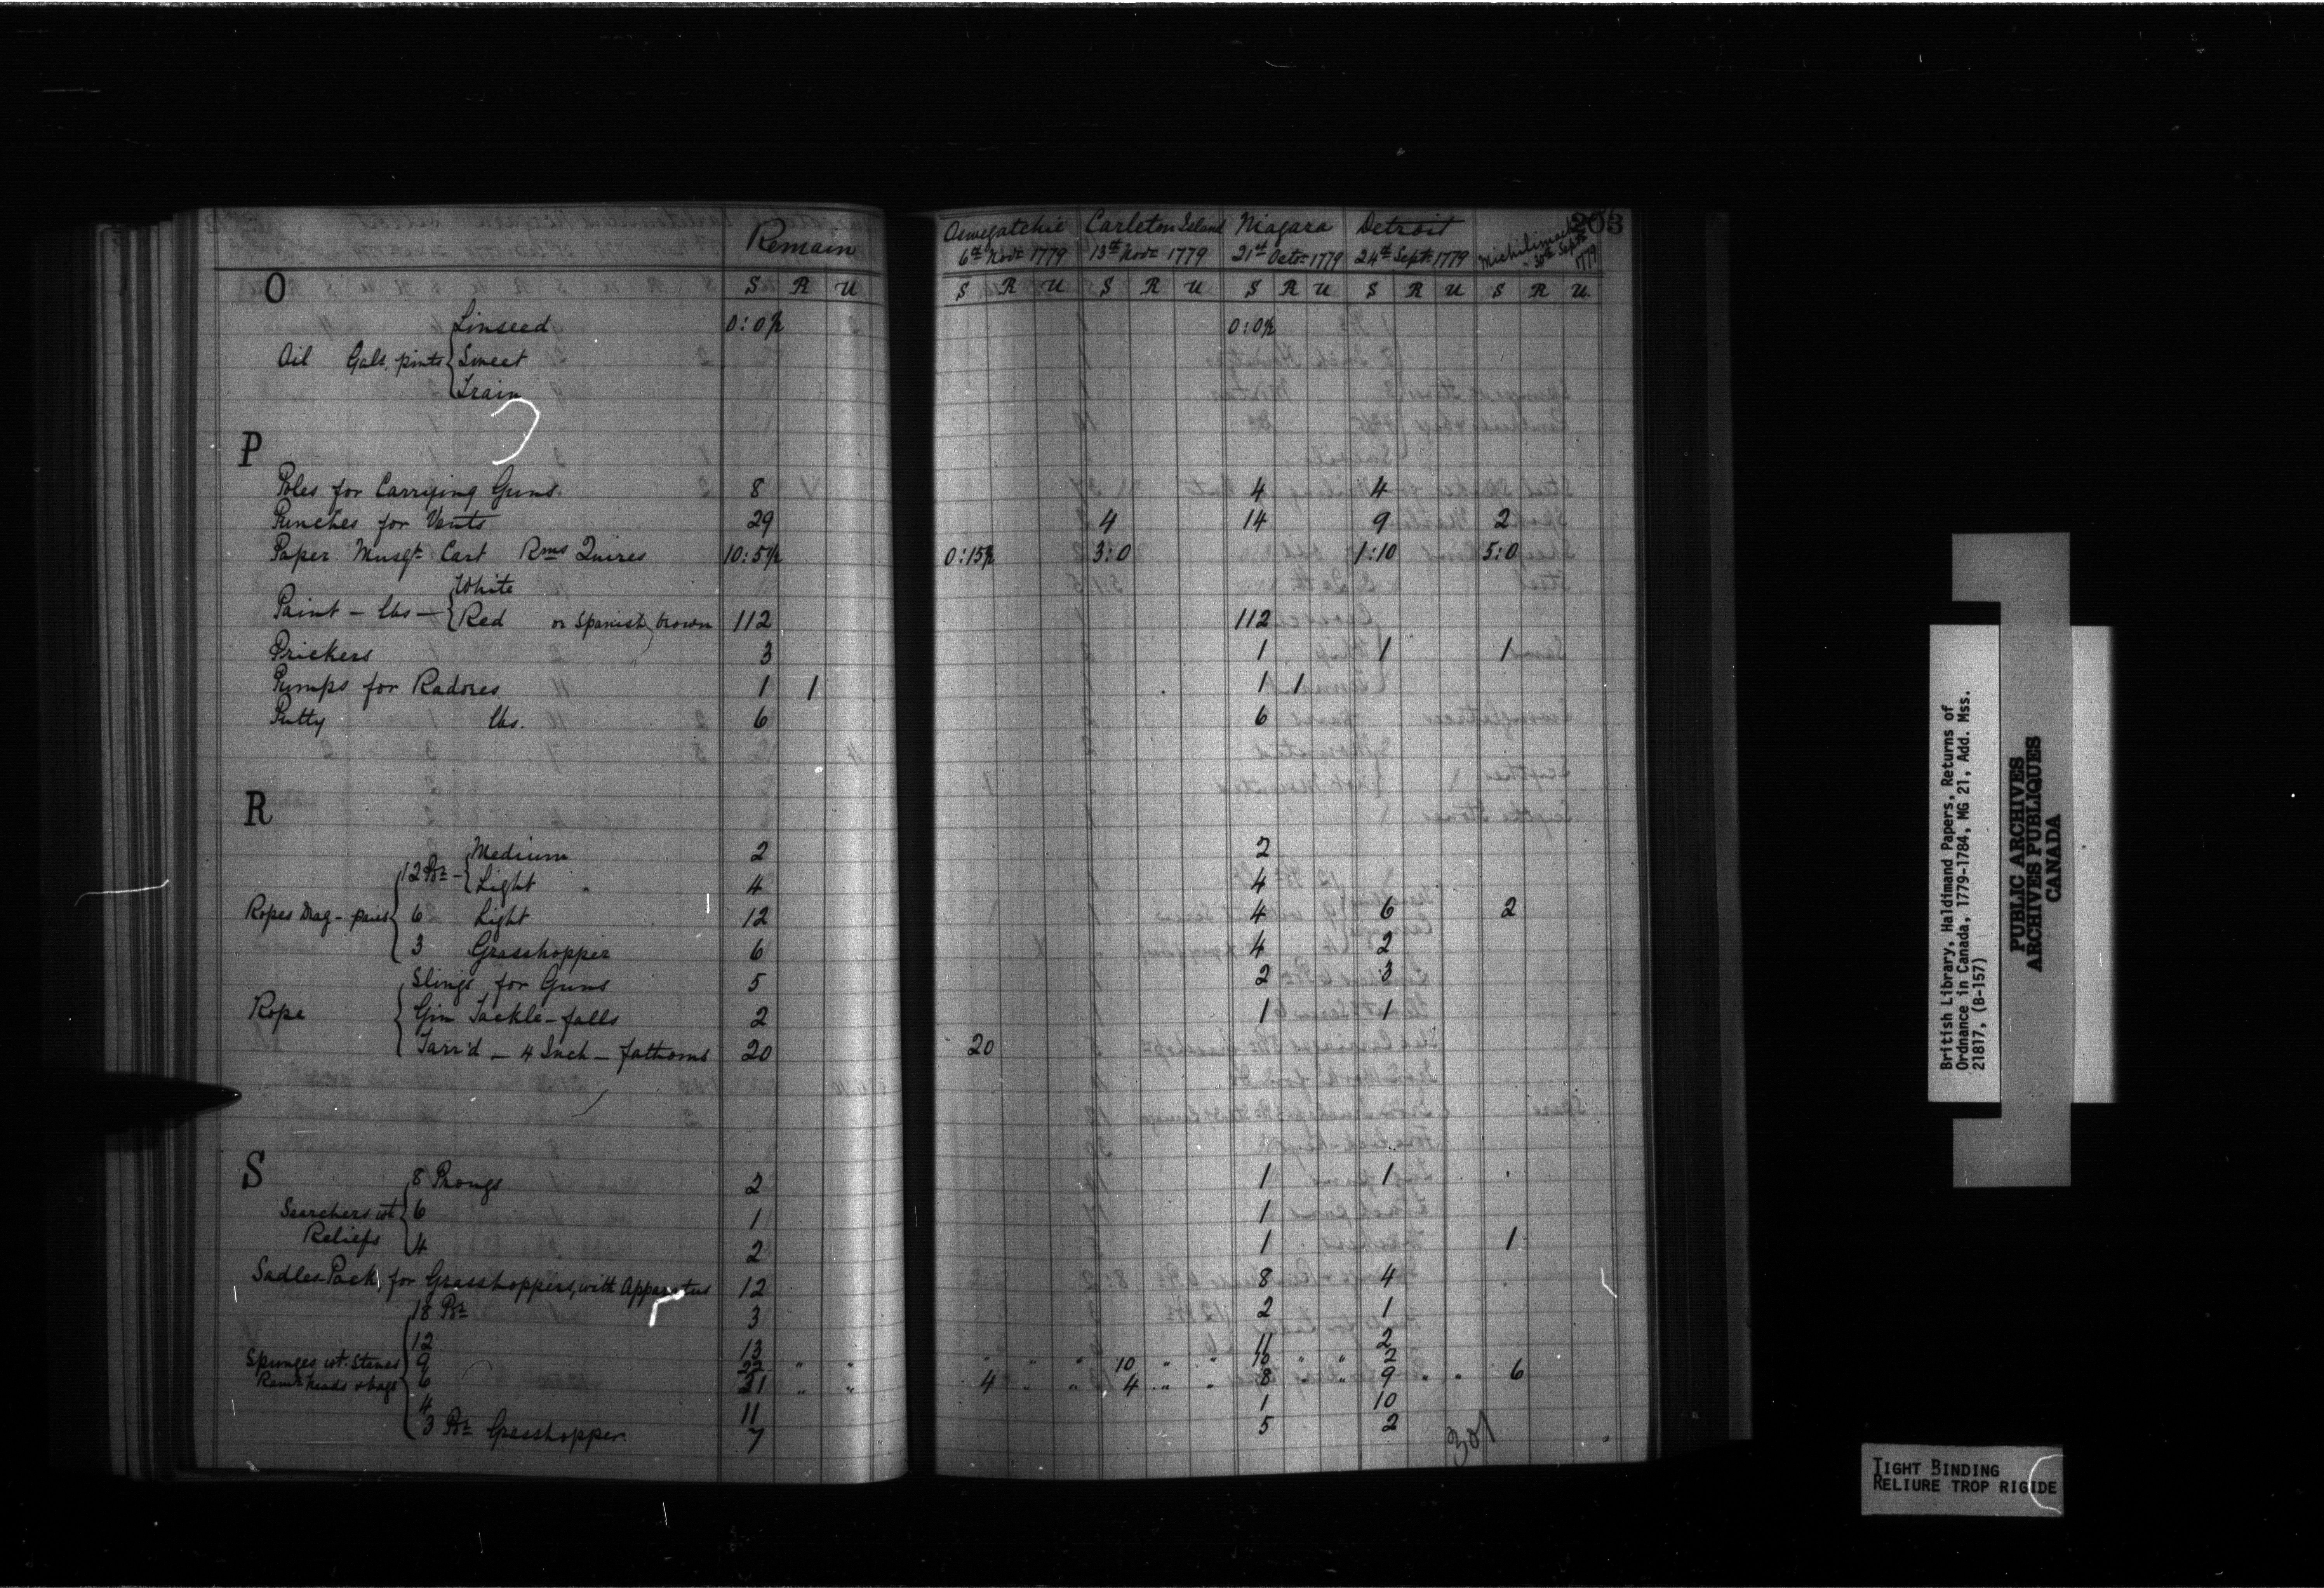 Remain Oswegatchie Carleton Island Niagara Detroit Michilimack 203
6th Novr 1779 13th Novr 1779 21st Octr 1779 24th Septr 1779 30th Septr 1779
O S R U S R U S R U S R U S R U S R U.
Linseed 0:0½ 0:0½
Oil Gals. pints Sweet
Train
P
Poles for Carrying Guns. 8 4 4
Punches for Vents 29 4 14 9 2
Paper. Musqt Cart Rms Quires 10:5½ 0:15½ 3:0 1:10 5:0
White
Paint - lbs - Red or Spanish brown 112 112
Prickers 3 1 1 1
Pumps for Radores 1 1 1 1
Putty lbs. 6 6
R
Medium 2 2
12 Pr - Light 4 4
Ropes Drag - pairs 6 Light 12 4 6 2
3 Grasshopper 6 4 2
Slings for Guns 5 2 3
Rope Gin Tackle-falls 2 1 1
Tarr'd - 4 Inch - fathoms 20 20
S
8 Prongs 2 1 1
Searchers wt 6 1 1
Reliefs 4 2 1 1
Sadles-Pack, for Grasshoppers, with Apparatus 12 8 4
18 Pr 3 2 1
12 13 11 2
Spunges wt. Staves 9 22 " " " " " 10 " " 10 " " 2
Ramr heads & bags 6 31 " " 4 " " 4 " " 8 " 9 " " 6
4 11 1 10
3 Pr Grasshopper. 7 5 2
301
British Library, Haldimand Papers, Returns of
Ordnance in Canada, 1779-1784, MG 21, Add. Mss.
21817, (B-157)
PUBLIC ARCHIVES
ARCHIVES PUBLIQUES
CANADA
TIGHT BINDING
RELIURE TROP RIGIDE